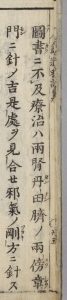 圖書ニ不及療治ハ兩腎丹田臍ノ兩傍章
門ニ針ノ吉是處ヲ見合セ邪氣ノ剛方ニ針ス